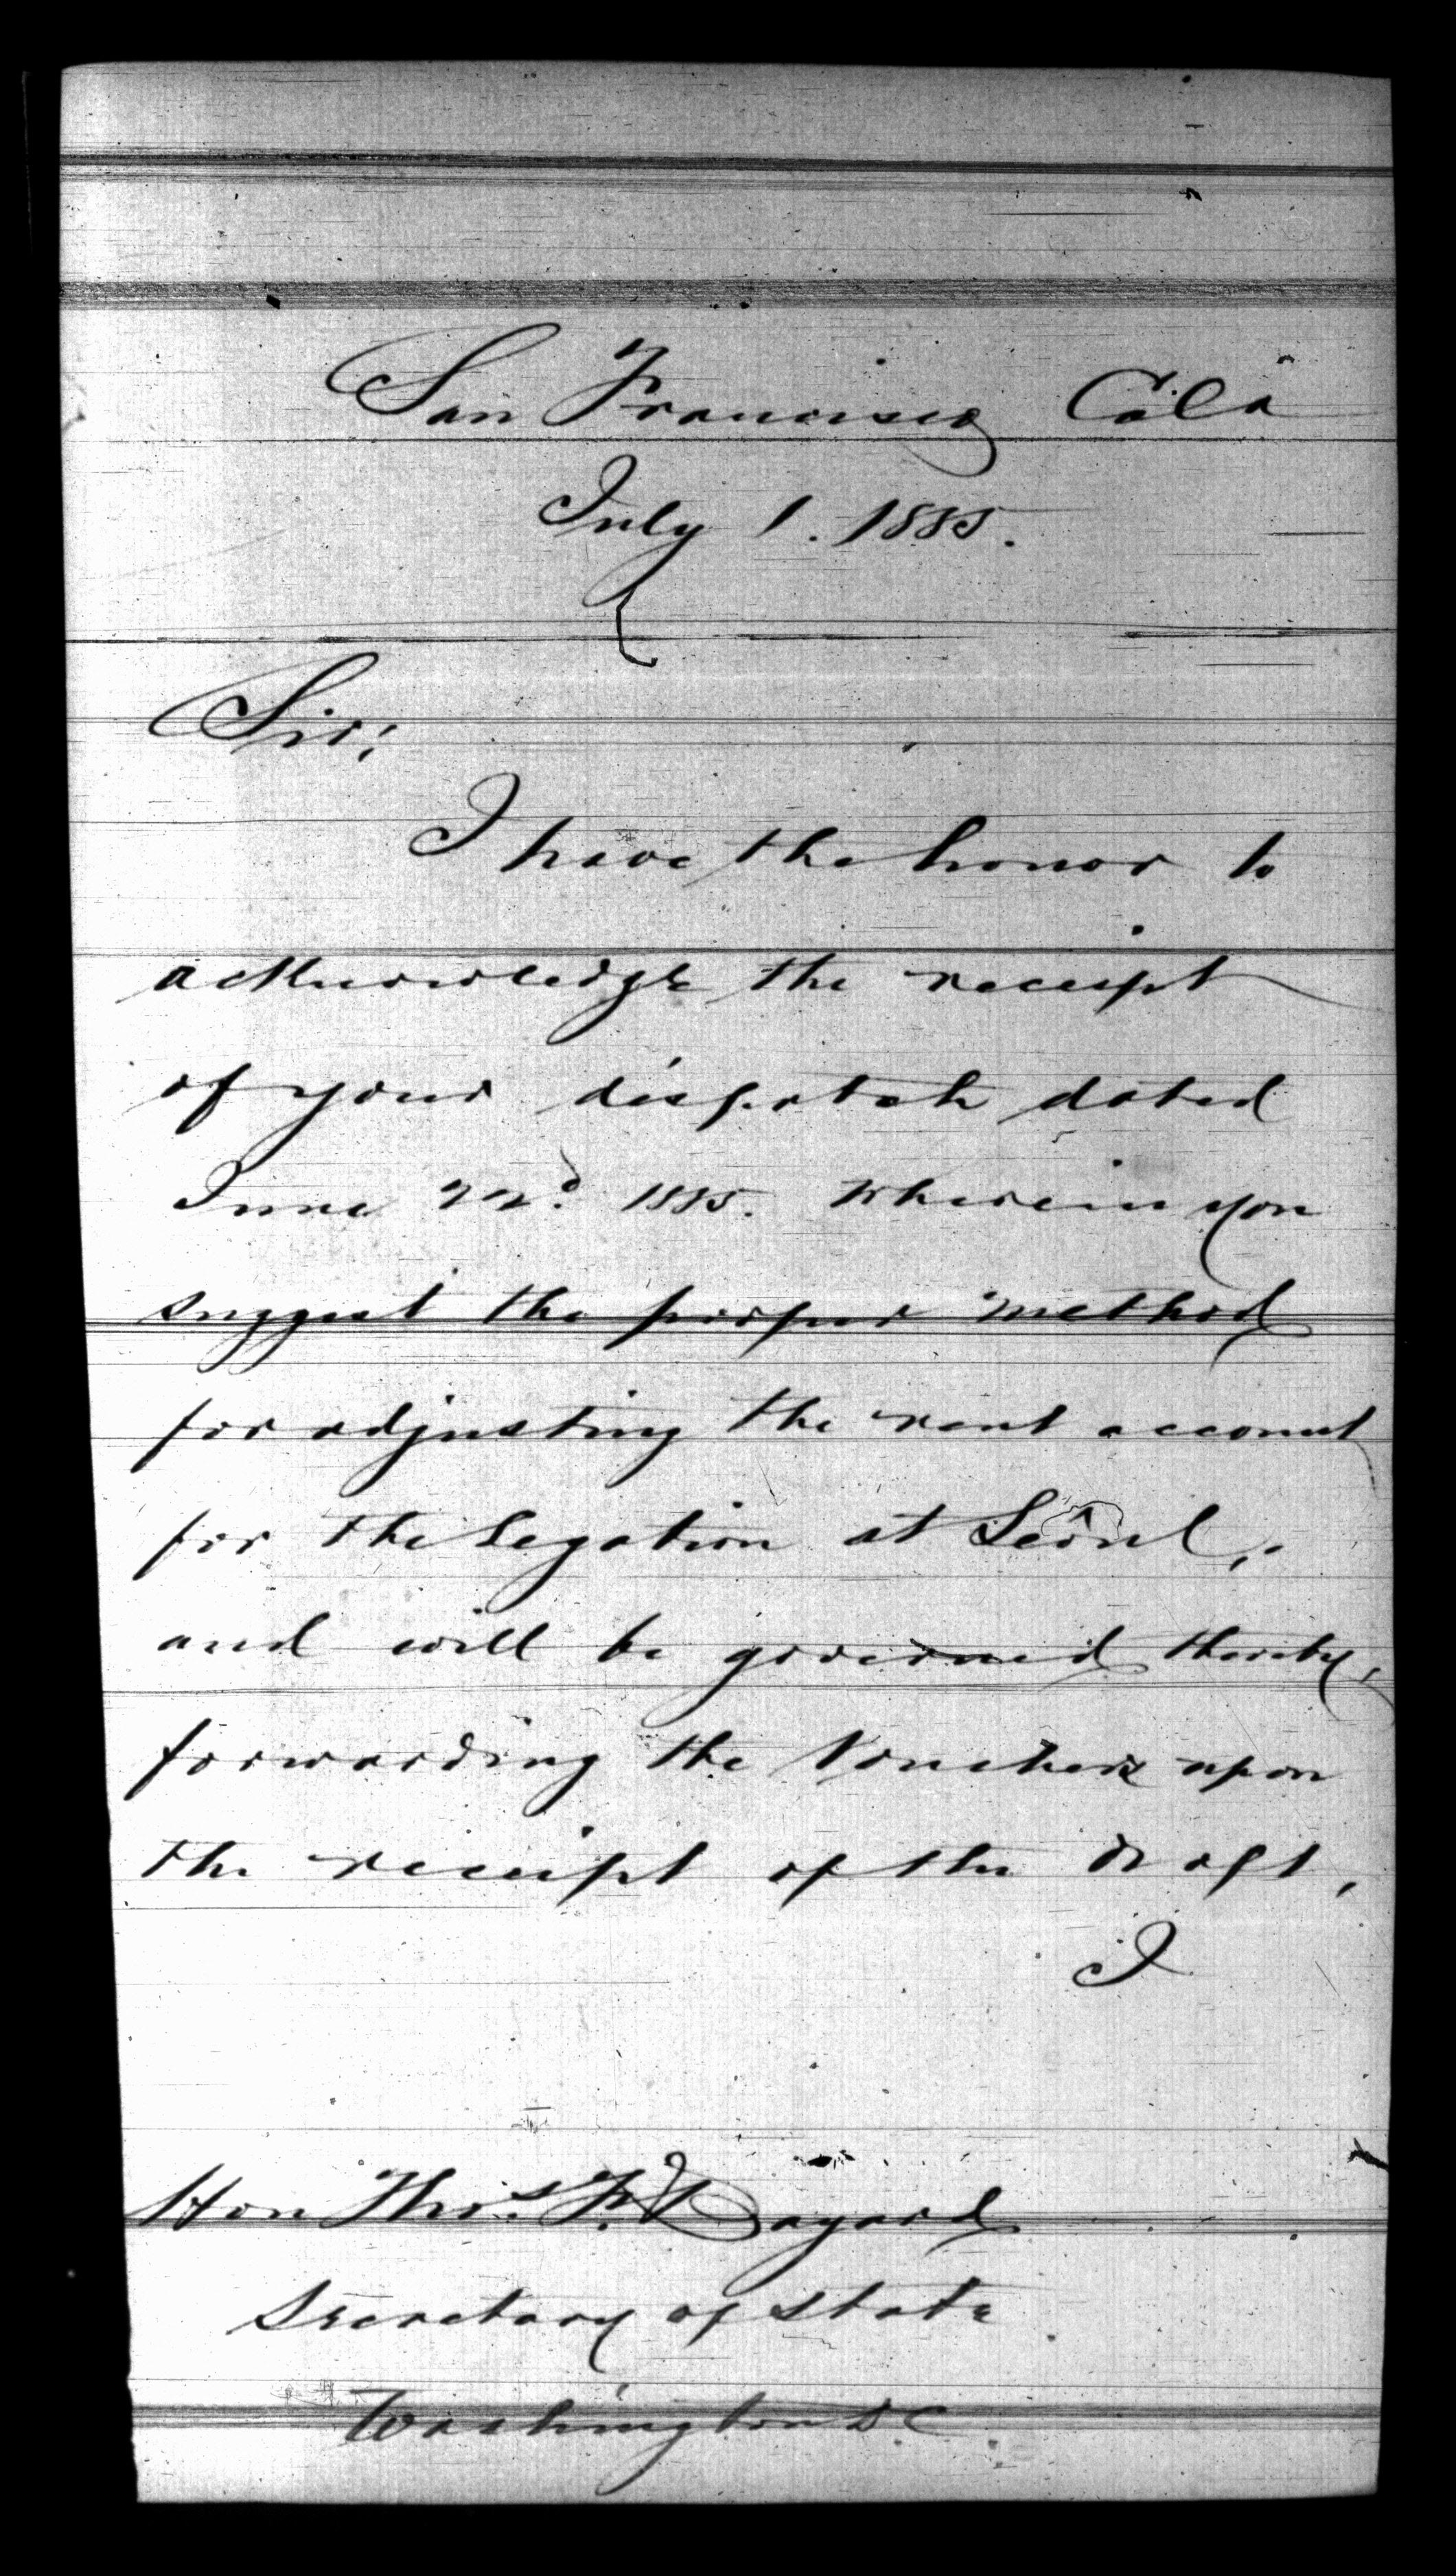 San Francisco Cala
July 1. 1885.
Sir;
I have the honor to
acknowledge the receipt
of your dispatch dated
June 22d. 1885. wherein you
suggest the proper method
for adjusting the rent account
for the Legation at Seoul,
and will be governed thereby,
forwarding the Vouchers upon
the receipt of the draft,
I
Hon Thos. F. Bayard
Secretary of State
Washington DC